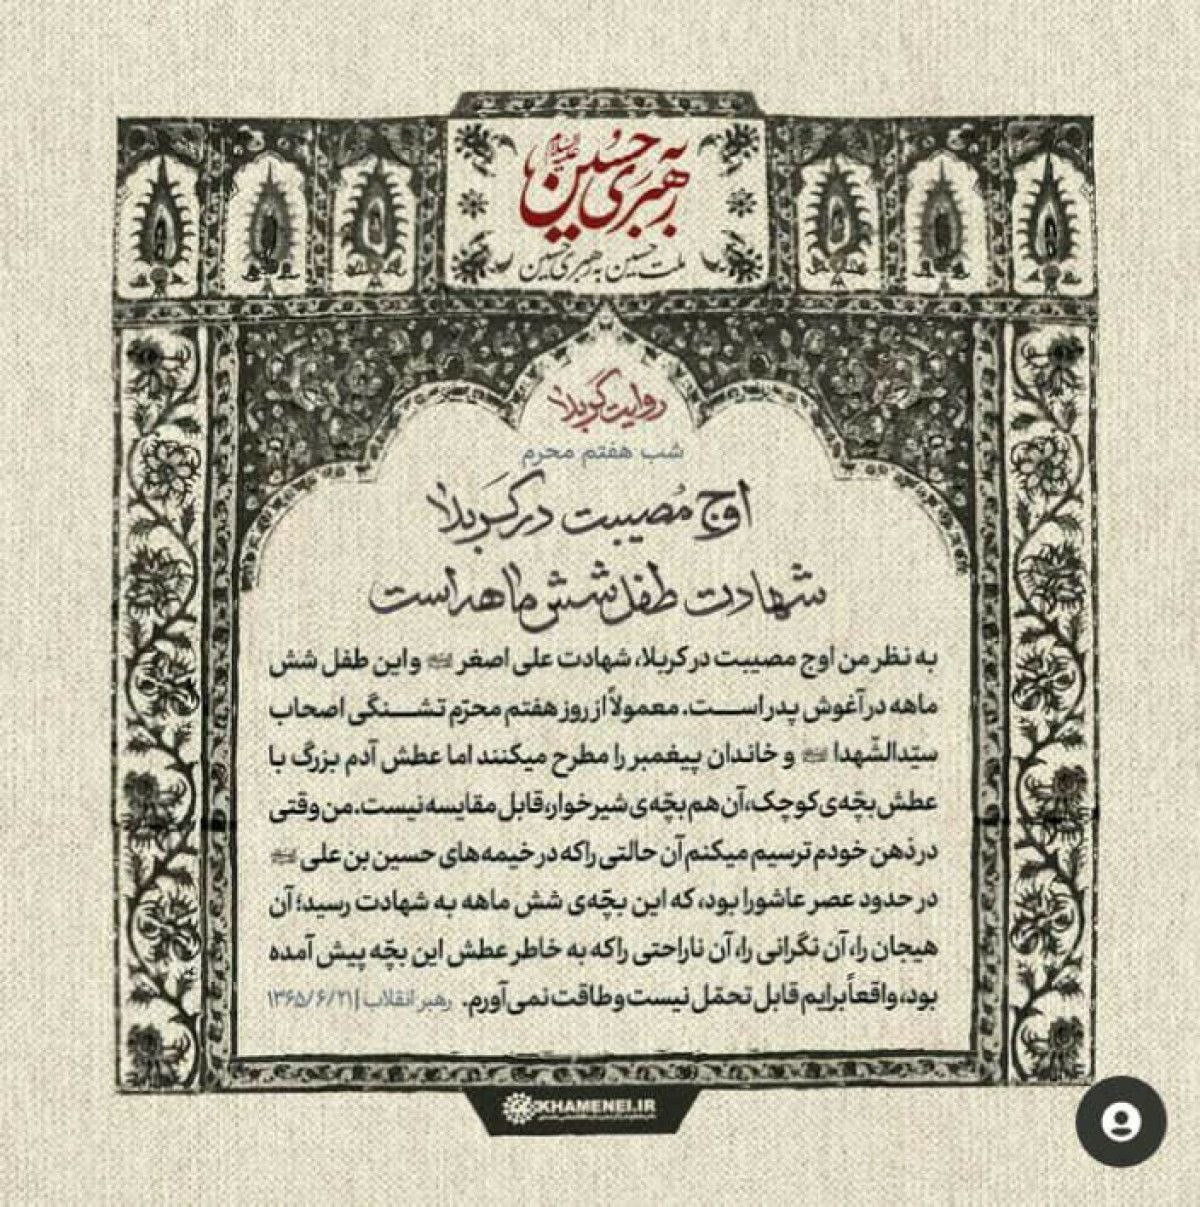 به رهبری حسین علیه‌السلام
ملت حسین به رهبری حسین
روایت کربلا
شب هفتم محرم
اوج مُصیبت در کَربلا
شهادت طفل شش ماهه است
به نظر من اوج مصیبت در کربلا، شهادت علی اصغر و این طفل شش
ماهه در آغوش پدر است. معمولاً از روز هفتم محرّم تشنگی اصحاب
سیّدالشّهدا و خاندان پیغمبر را مطرح میکنند اما عطش آدم بزرگ با
عطش بچّه‌ی کوچک، آن هم بچّه‌ی شیرخوار، قابل مقایسه نیست. من وقتی
در ذهن خودم ترسیم میکنم آن حالتی را که در خیمه‌های حسین بن علی
در حدود عصر عاشورا بود، که این بچّه‌ی شش ماهه به شهادت رسید؛ آن
هیجان را، آن نگرانی را، آن ناراحتی را که به خاطر عطش این بچّه پیش آمده
بود، واقعاً برایم قابل تحمّل نیست و طاقت نمی‌آورم. رهبر انقلاب | ۱۳۶۵/۶/۲۱
KHAMENEI.IR